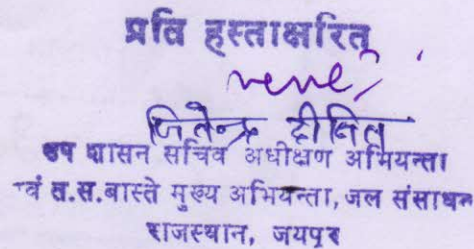 प्रति हस्ताक्षरित
जितेन्द्र दीक्षित
उप शासन सचिव अधीक्षण अभियन्ता
एवं त.स.बास्ते मुख्य अभियन्ता, जल संसाधन
राजस्थान, जयपुर